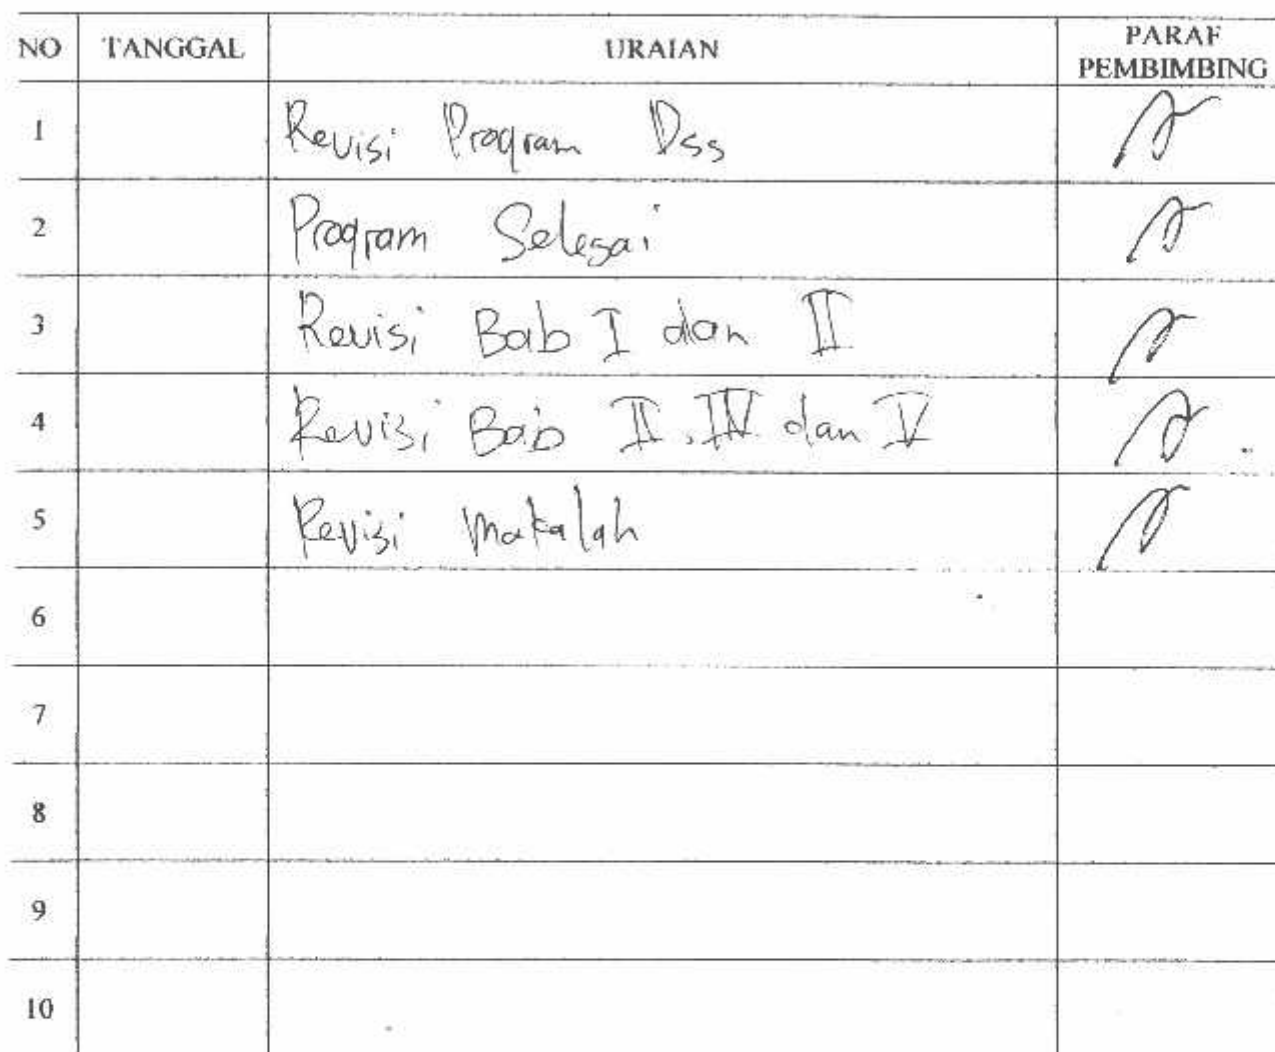 NO TANGGAL URAIAN PARAF PEMBIMBING
1 Revisi Program Dss
2 Program Selesai
3 Revisi Bab I dan II
4 Revisi Bab II, IV dan V
5 Revisi Makalah
6
7
8
9
10